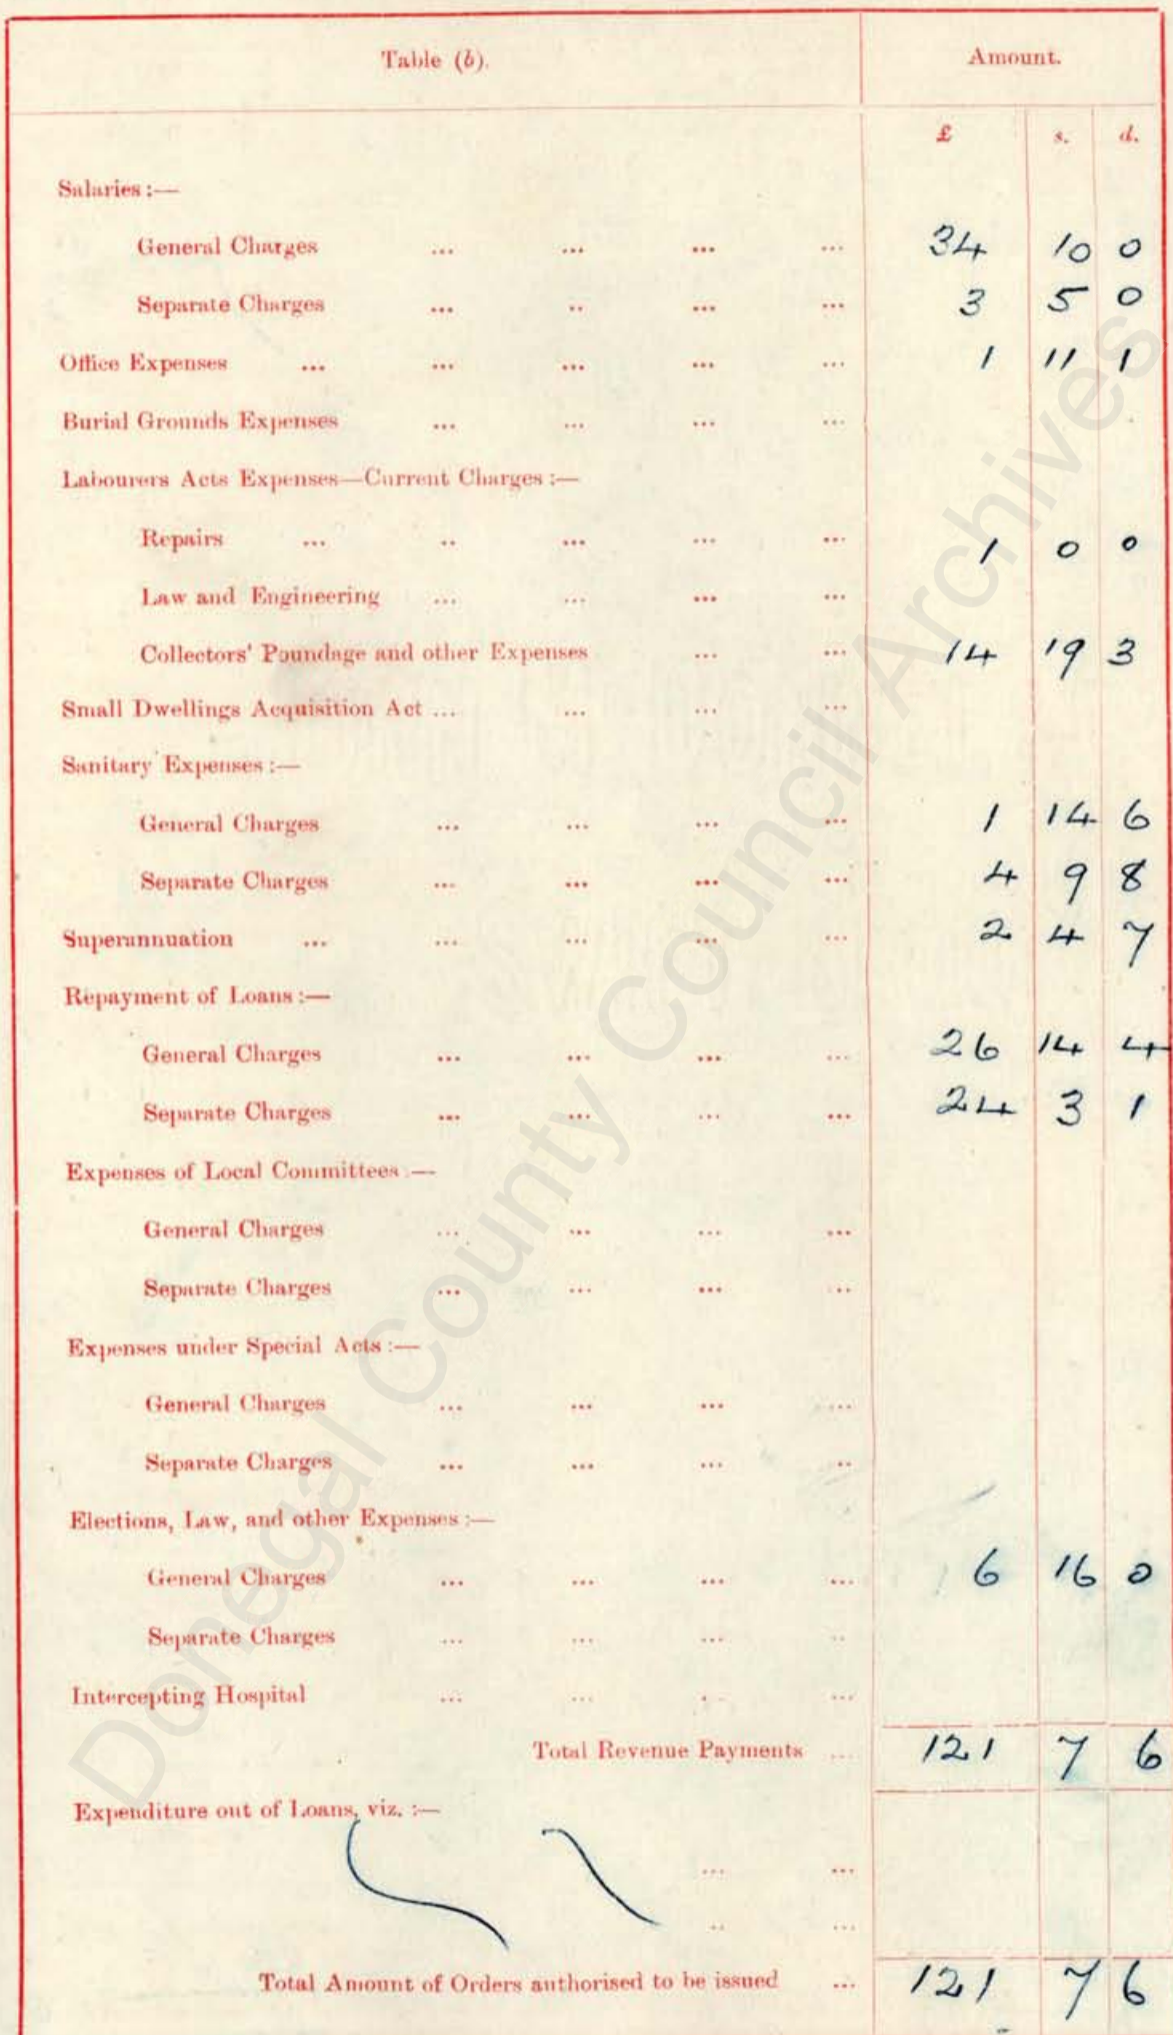 Table (b). Amount.
£ s. d.
Salaries :—
General Charges ... ... ... ... 34 10 0
Separate Charges ... .. ... ... 3 5 0
Office Expenses ... ... ... ... ... 1 11 1
Burial Grounds Expenses ... ... ... ...
Labourers Acts Expenses—Current Charges :—
Repairs ... .. ... ... ... 1 0 0
Law and Engineering ... ... ... ...
Collectors' Poundage and other Expenses ... ... 14 19 3
Small Dwellings Acquisition Act ... ... ... ...
Sanitary Expenses :—
General Charges ... ... ... ... 1 14 6
Separate Charges ... ... ... ... 4 9 8
Superannuation ... ... ... ... ... 2 4 7
Repayment of Loans :—
General Charges ... ... ... ... 26 14 4
Separate Charges ... ... ... ... 24 3 1
Expenses of Local Committees :—
General Charges ... ... ... ...
Separate Charges ... ... ... ...
Expenses under Special Acts :—
General Charges ... ... ... ...
Separate Charges ... ... ... ..
Elections, Law, and other Expenses :—
General Charges ... ... ... ... 6 16 0
Separate Charges ... ... ... ..
Intercepting Hospital ... ... ... ...
Total Revenue Payments ... 121 7 6
Expenditure out of Loans, viz. :—
... ...
.. ...
Total Amount of Orders authorised to be issued ... 121 7 6
Donegal County Council Archives